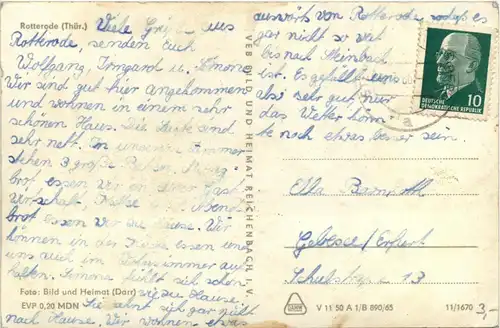 Rotterode (Thür.)
Viele Grüße aus
Rotterode, senden Euch
Wolfgang, Irmgard u. Simone
Wir sind gut hier angekommen
und wohnen in einem sehr
schönen Haus. Die Leute sind
sehr nett. In unserem Zimmer
stehen 3 große Betten.
brot essen wir in
Abend
brot essen wir zu Hause. Wir
können in der essen und
uns auch im aufhalten. Simone fühlt sich schon
wie zu Hause.
Sie sehnt sich gar nicht
nach Hause. Wir wohnen etwas
Foto: Bild und Heimat (Darr)
EVP 0,20 MDN
VEB BILD UND HEIMAT REICHENBACH I. V.
auswärts von Rotterode, sodaß es
gar nicht so weit
bis nach Steinbach
ist. Es gefällt uns
also sehr gut, nur
das Wetter könn-
te noch etwas besser sein.
10
DEUTSCHE
DEMOKRATISCHE REPUBLIK
Ella
Gebesee / Erfurt
13
V 11 50 A 1/B 890/65
11/1670